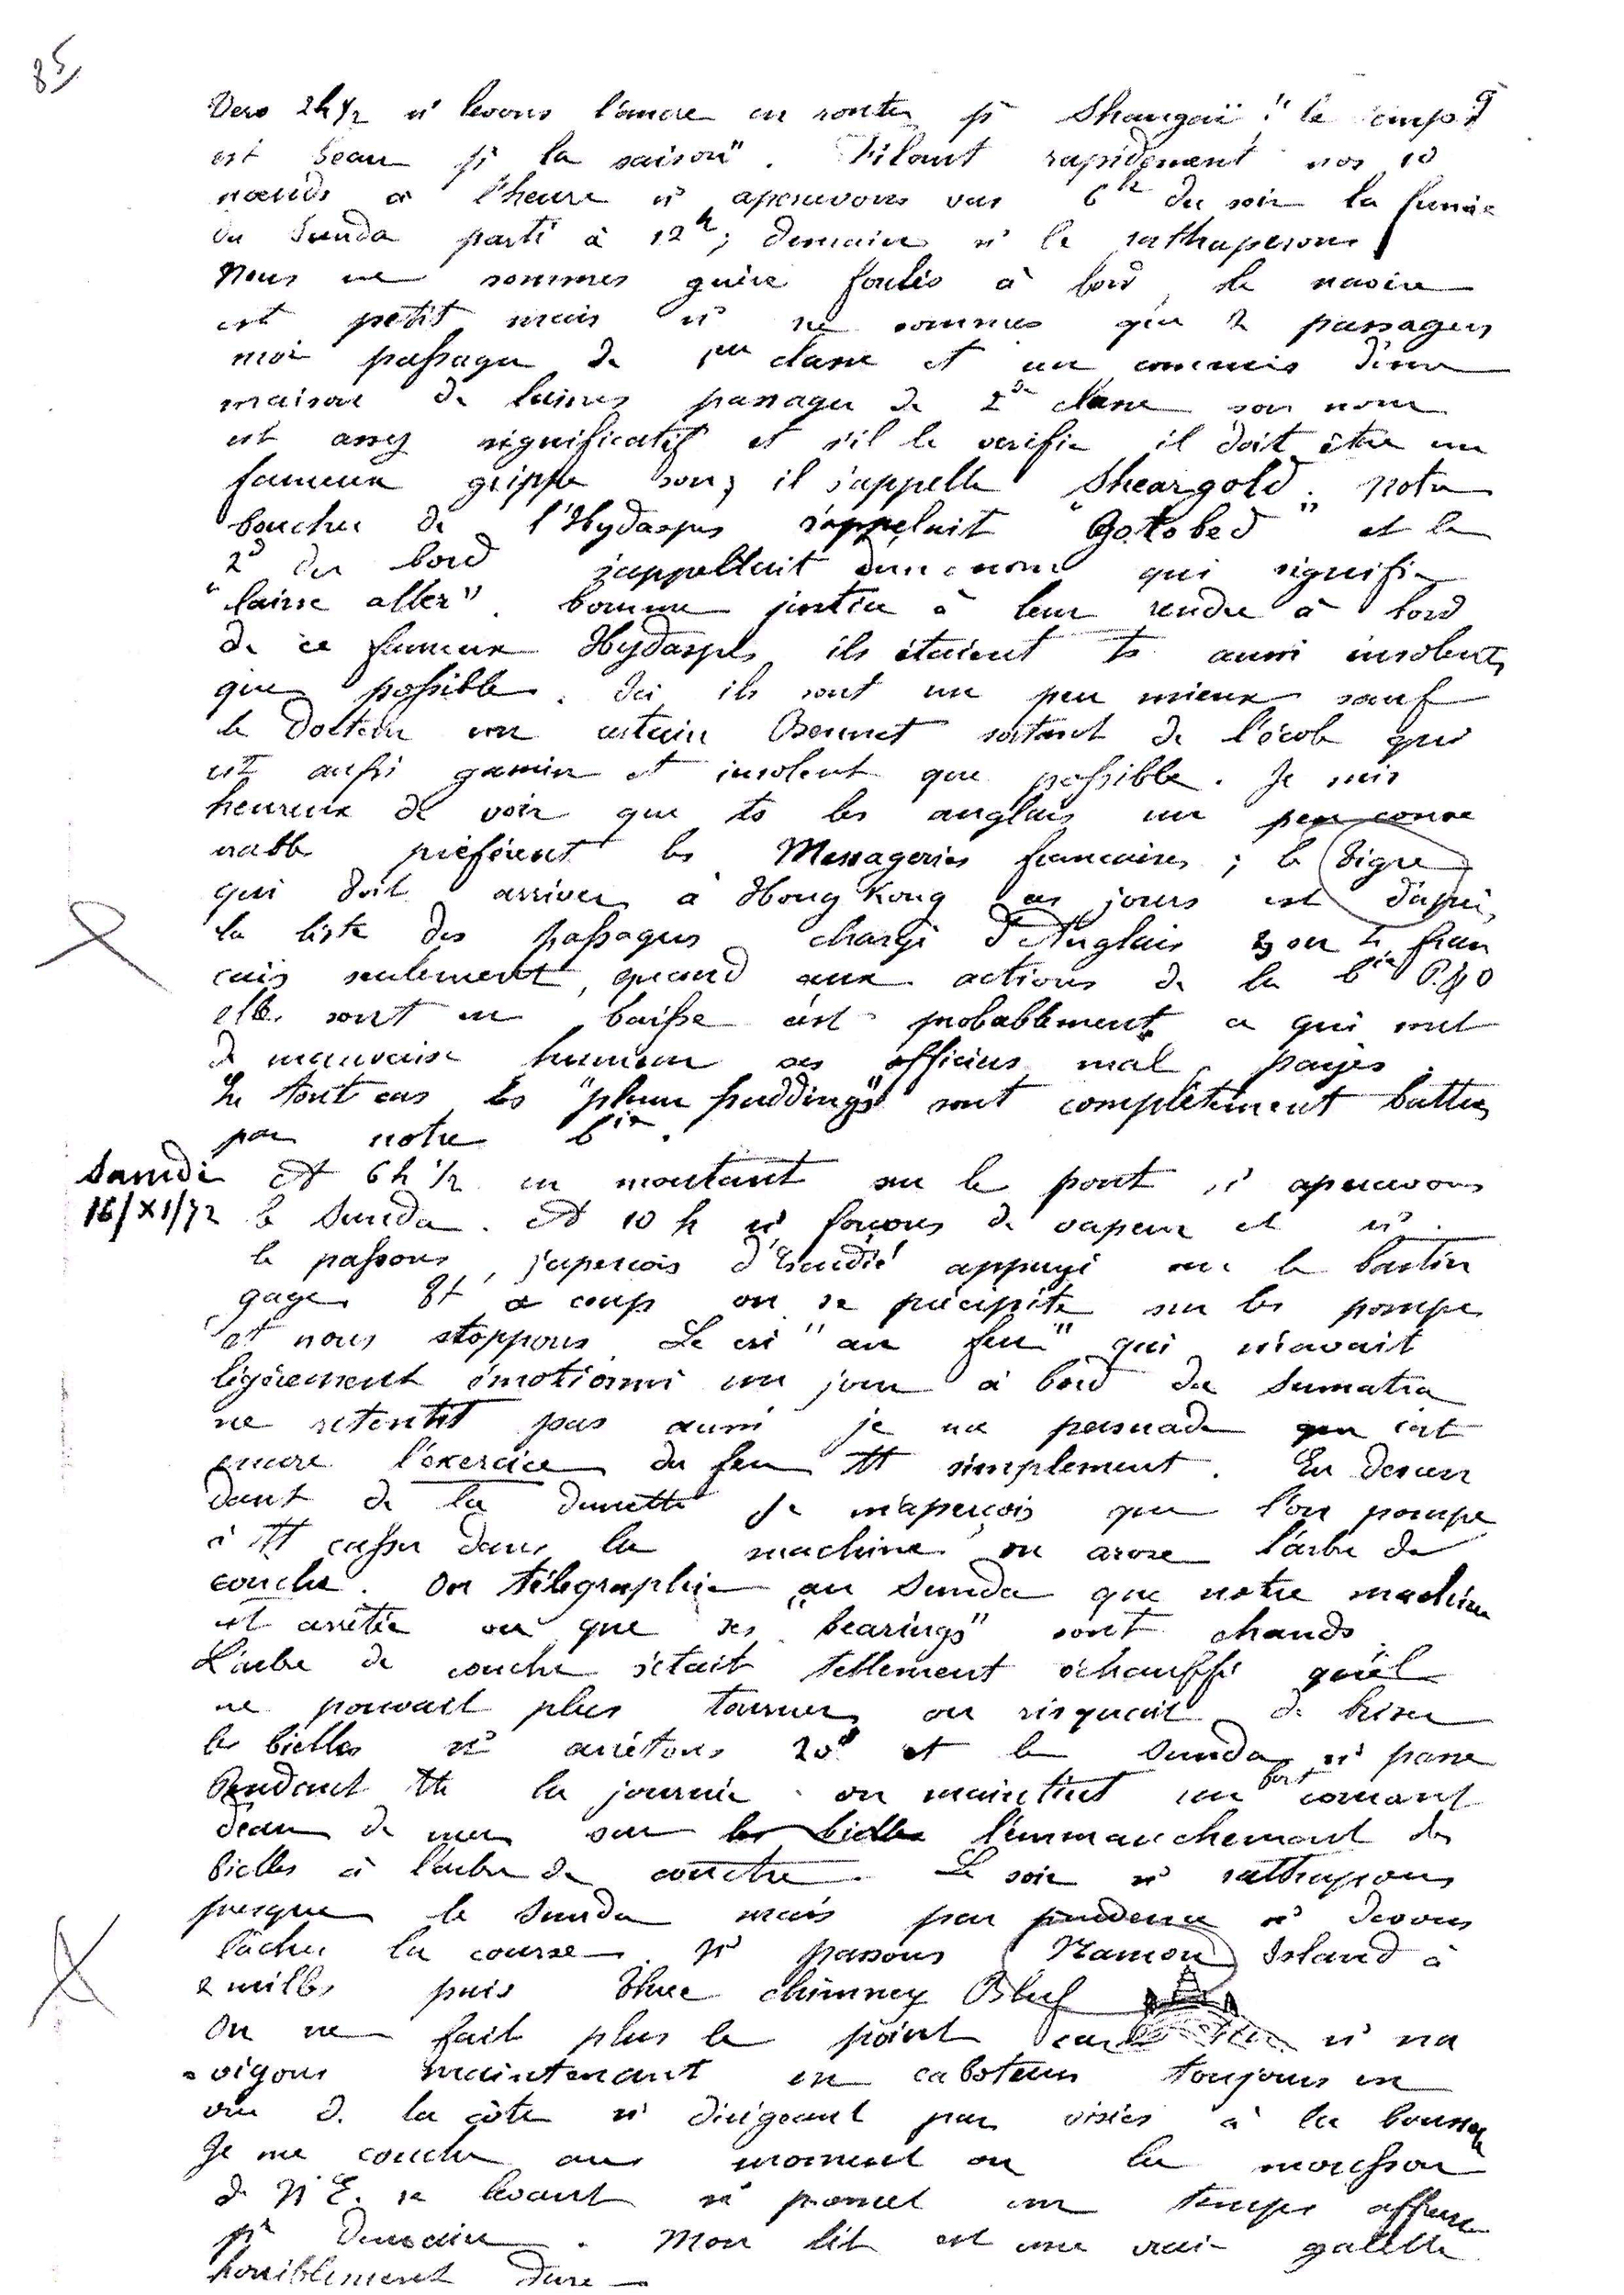 85
Vers 2h 1/2 ns levons l'ancre en route pr Shangaï "le temps
est beau pr la saison". Filant rapidement nos 10
nœuds à l'heure ns apercevons vers 6h du soir la fumée
du Sunda parti à 12h; demain ns le rattraperons
Nous ne sommes guère foulés à bord, le navire
est petit mais ns ne sommes que 2 passagers
moi passager de 1ere classe et un commis d'une
maison de laines passager de 2de classe son nom
est assez significatif et s'il le verifie il doit être un
fameux grippe sou; il s'appelle "Sheargold". Notre
boucher de l'Hydaspes s'appelait "Gotobed" et le
2d du bord s'appellait d'un nom qui signifie
"laisse aller". Comme justice à leur rendre à bord
de ce fameux Hydaspes ils étaient ts aussi insolents
que possible. Ici ils sont un peu mieux sauf
le Docteur un certain Bennet sortant de l'école qui
est aussi gamin et insolent que possible. Je suis
heureux de voir que ts les anglais un peu conve
nables préfèrent les Messageries françaises; le Tigre
qui doit arriver à Hong Kong ces jours est d'après
la liste des passagers chargé d'Anglais 3 ou 4 fran
cais seulement, quand aux actions de la Cie P.&O
elles sont en baisse c'est probablement ce qui met
de mauvaise humeur ses officiers mal payés.
En tout cas les "plum puddings" sont complètement battus
par notre Cie.
Samdi A 6h 1/2 en montant sur le pont ns apercevons
16/XI/72 le Sunda. A 10 h ns forçons de vapeur et ns
le passons, j'aperçois d'Haudié appuyé sur le bastin
gage. Tt à coup on se précipite sur les pompes
et nous stoppons. Le cri "au feu" qui m'avait
légèrement émotionné un jour à bord du Sumatra
ne retentit pas aussi je me persuade que c'est
encore l'exercice du feu tt simplement. En descen
dant de la dunette je m'aperçois que l'on pompe
à tt casser dans la machine on arose l'arbre de
couche. On télégraphie au Sunda que notre machine
est arrêtée ou que ses "bearings" sont chauds.
L'arbre de couche s'était tellement échauffé qu'il
ne pouvait plus tourner, on risquait de briser
les bielles ns arrêtons 20' et le Sunda ns passe
Pendant tte la journée on maintint un fort courant
d'eau de mer sur les bielles l'emmanchement des
bielles à l'arbre de couche. Le soir ns rattrapons
presque le Sunda mais par prudence ns devons
lâcher la course. Ns passons Namon Island à
2 milles puis Three chimney Bluf
On ne fait plus le point car ns na
vigons maintenant en caboteurs toujours en
vue de la côte ns dirigeant par visées à la boussole
Je me couche au moment ou la mousson
de N.E. se levant ns promet un temps affreux
pr demain. Mon lit est une vraie galette
horriblement dure